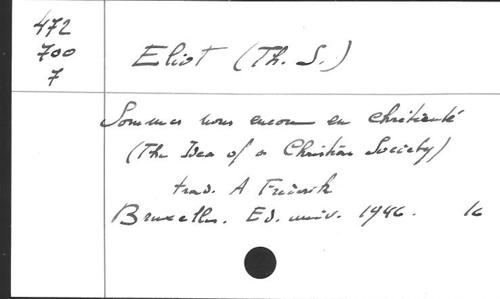 472
700
7
Eliot (Th. S.)
Sommes nous encore en chrétienté
(The Idea of a Christian Society)
trad. A Frédérik
Bruxelles. Ed. univ. 1946. 16